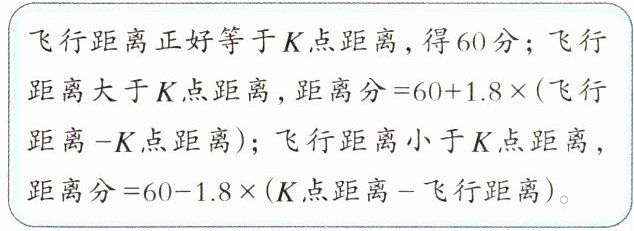 飞行距离正好等于K点距离，得60分；飞行
距离大于K点距离，距离分=60+1.8×(飞行
距离-K点距离)；飞行距离小于K点距离，
距离分=60-1.8×(K点距离-飞行距离)。